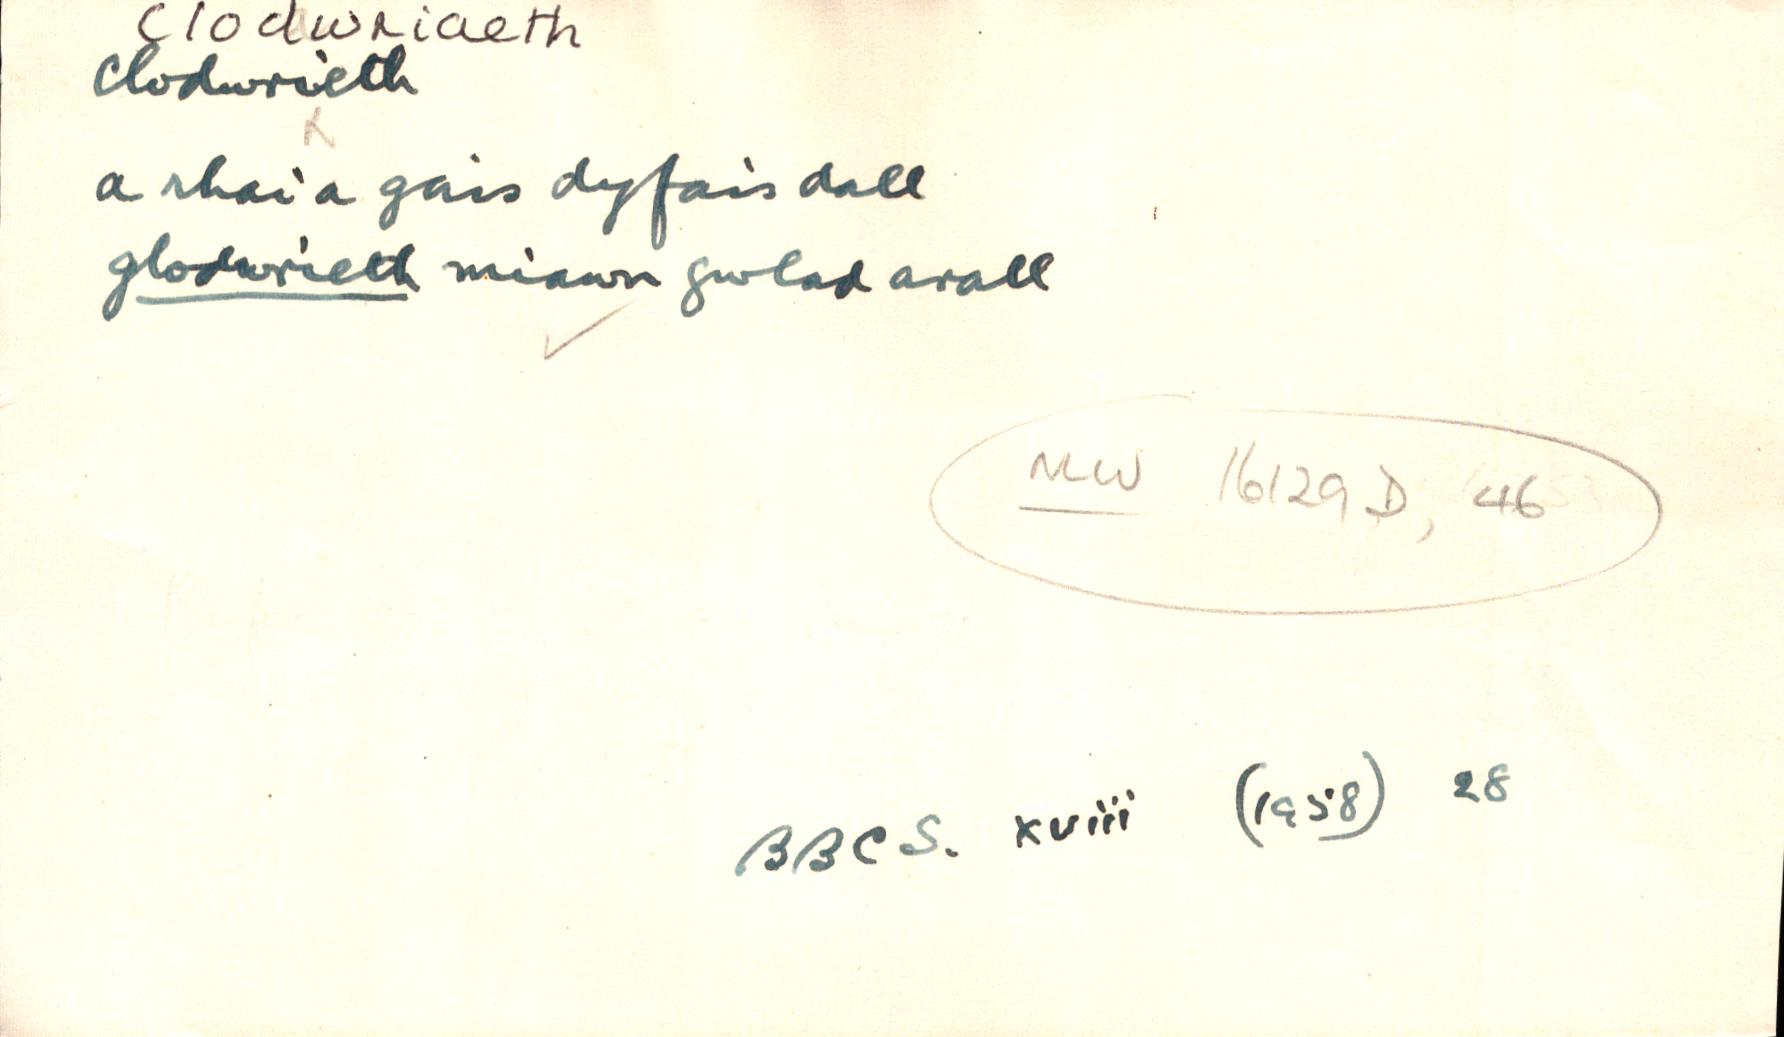 clodwriaeth
clodwrieth
a rhai a gais dyfais dall
glodwrieth miawn gwlad arall
NLW 16129D, 46
BBCS. xviii (1958) 28